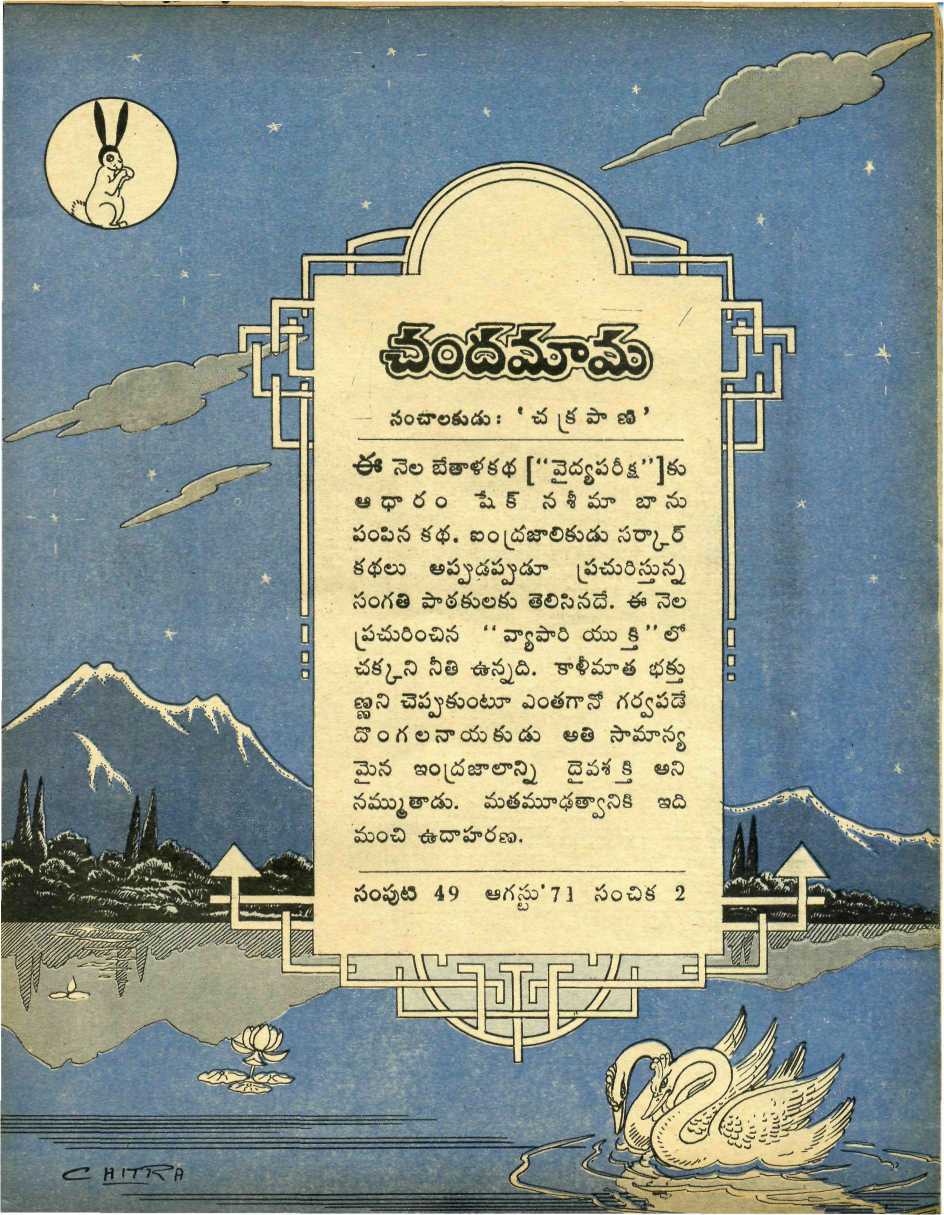 చందమామ
సంచాలకుడు: 'చక్రపాణి'
ఈ నెల బేతాళకథ ["వైద్యపరీక్ష"]కు
ఆధారం షేక్ నశీమా బాను
పంపిన కథ. ఐంద్రజాలికుడు సర్కార్
కథలు అప్పుడప్పుడూ ప్రచురిస్తున్న
సంగతి పాఠకులకు తెలిసినదే. ఈ నెల
ప్రచురించిన "వ్యాపారి యుక్తి"లో
చక్కని నీతి ఉన్నది. కాళీమాత భక్తు
ణ్ణని చెప్పుకుంటూ ఎంతగానో గర్వపడే
దొంగలనాయకుడు అతి సామాన్య
మైన ఇంద్రజాలాన్ని దైవశక్తి అని
నమ్ముతాడు. మతమూఢత్వానికి ఇది
మంచి ఉదాహరణ.
సంపుటి 49 ఆగస్టు '71 సంచిక 2
CHITRA